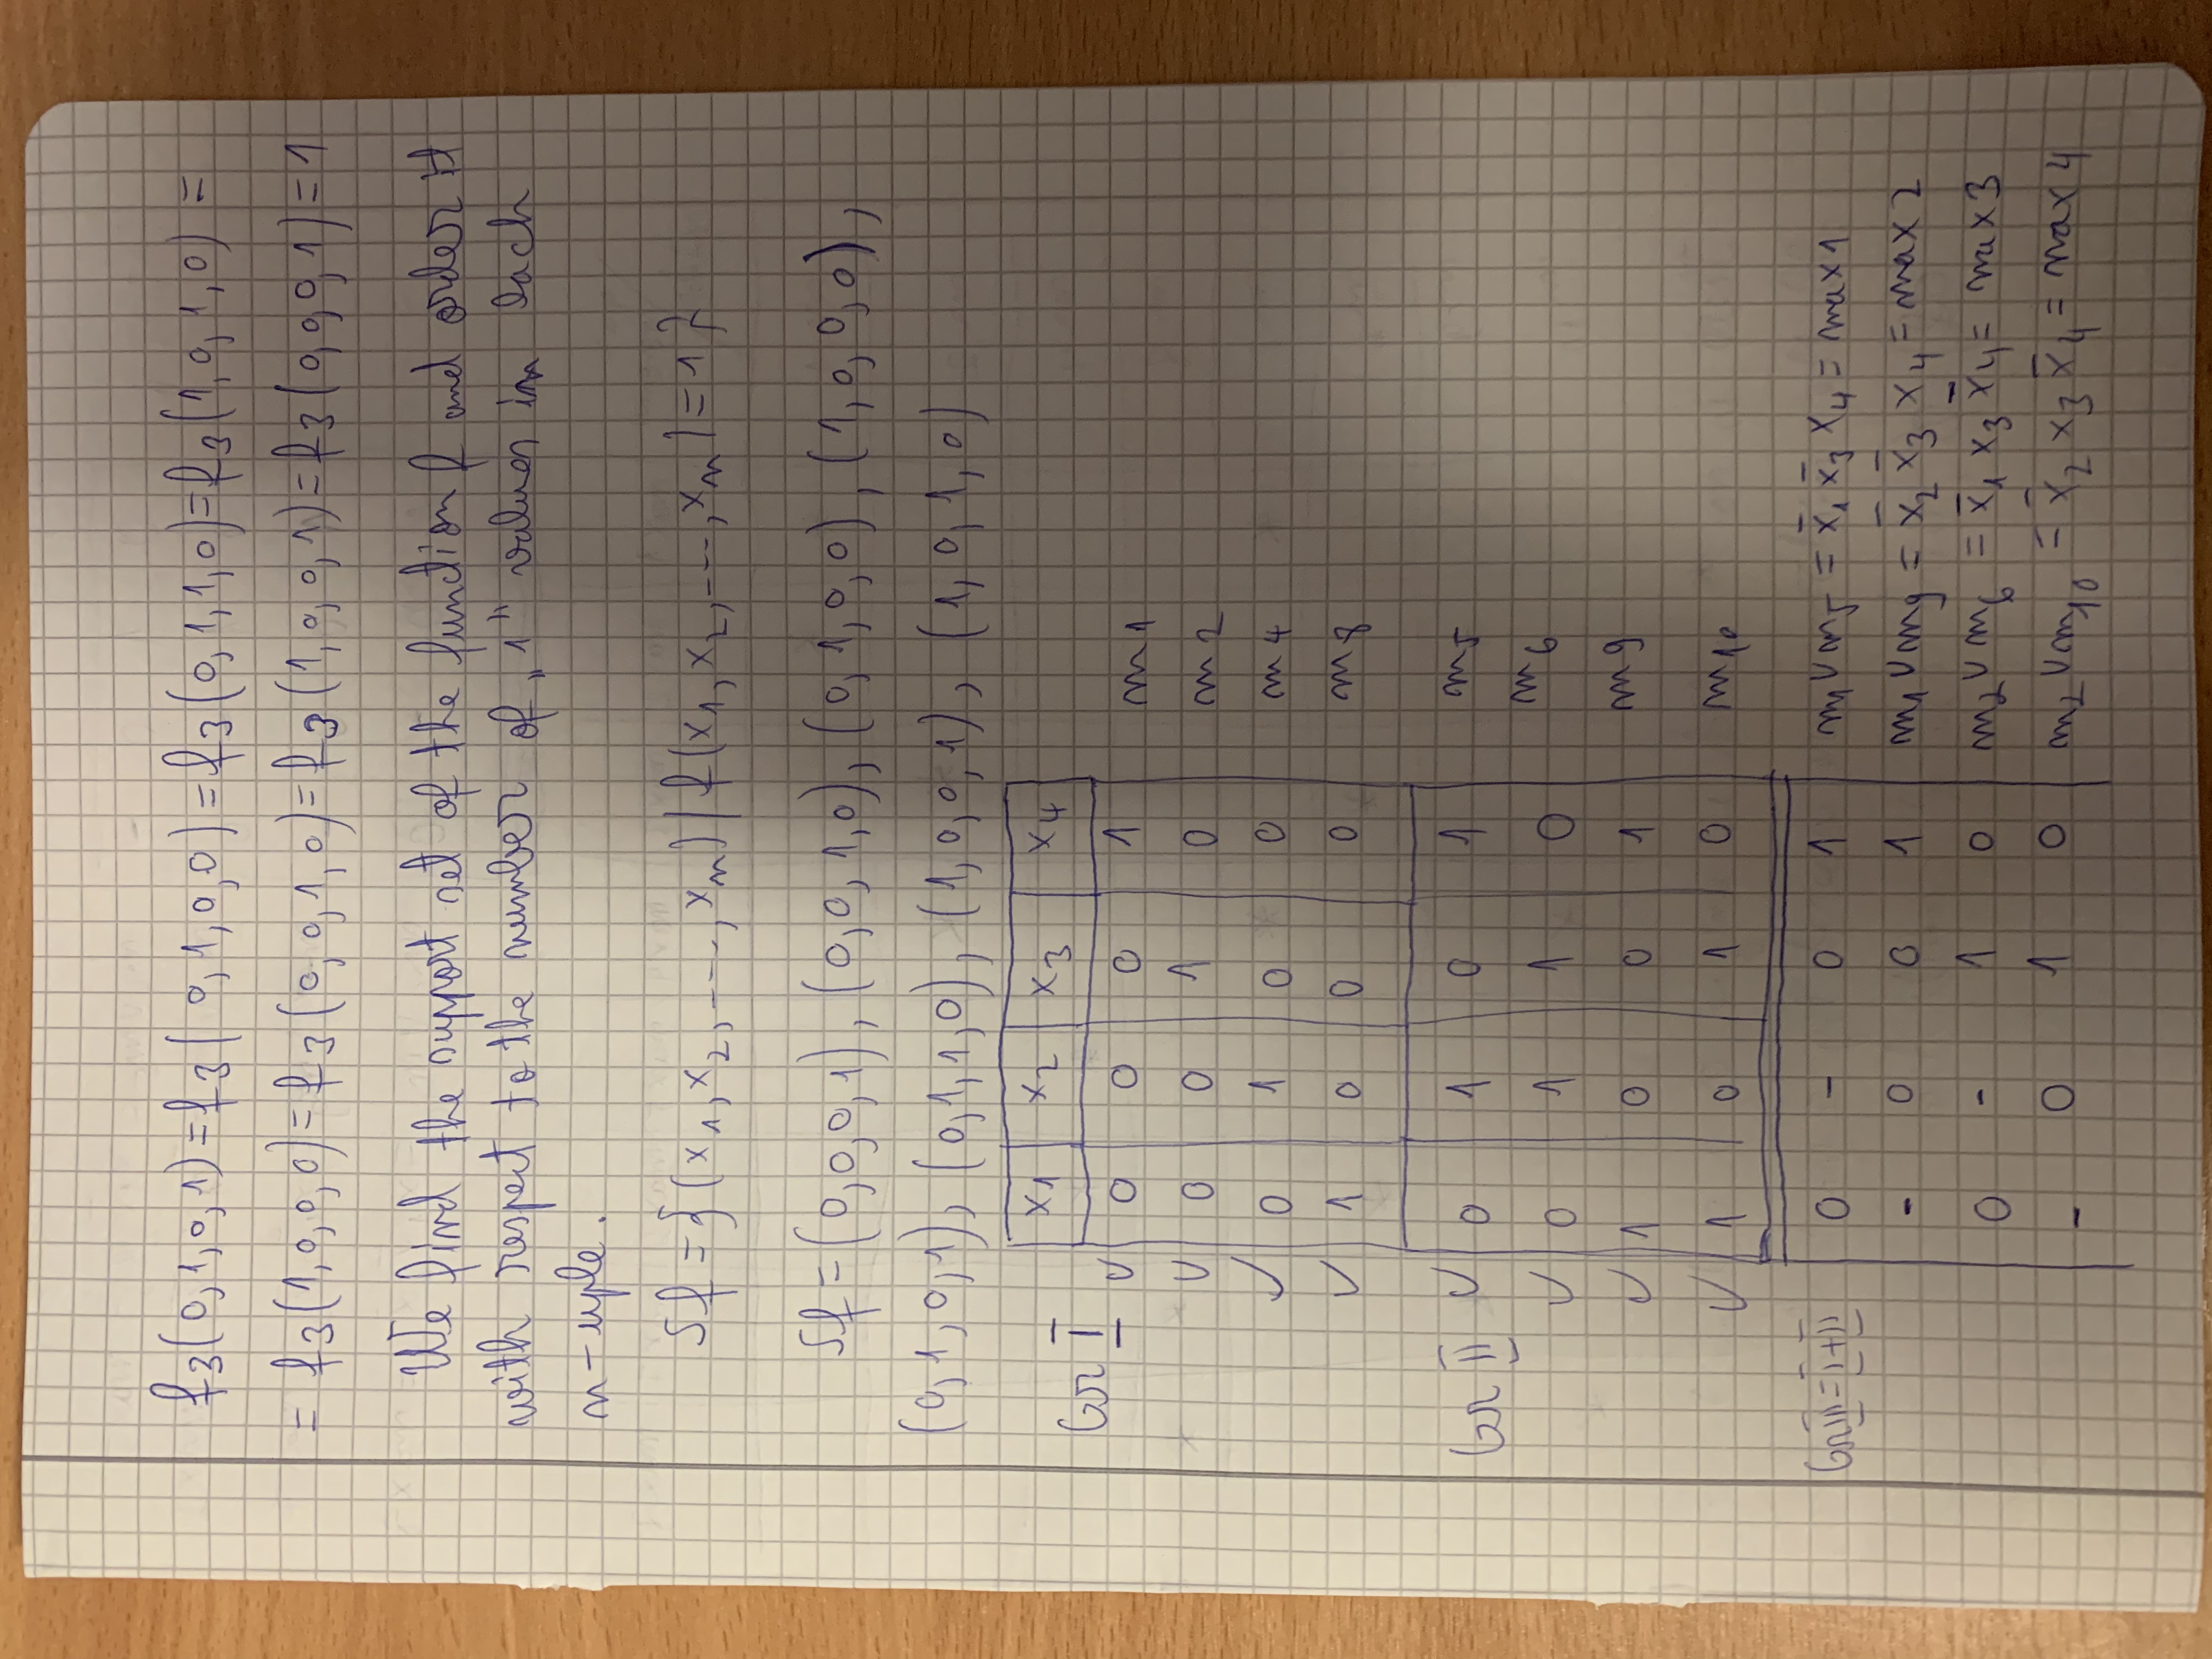 f3(0,1,0,1)=f3(0,1,0,0)=f3(0,1,1,0)=f3(1,0,1,0)=
=f3(1,0,0,0)=f3(0,0,1,0)=f3(1,0,0,1)=f3(0,0,0,1)=1
We find the support set of the function f and order it
with respect to the number of „1" values in each
n-uple.
Sf={(x1,x2,----,xn)|f(x1,x2,----,xn)=1}
Sf=(0,0,0,1), (0,0,1,0), (0,1,0,0), (1,0,0,0),
(0,1,0,1), (0,1,1,0), (1,0,0,1), (1,0,1,0)
x1 x2 x3 x4
Gr I
✓ 0 0 0 1 m1
✓ 0 0 1 0 m2
✓ 0 1 0 0 m4
✓ 1 0 0 0 m8
Gr II ✓ 0 1 0 1 m5
✓ 0 1 1 0 m6
✓ 1 0 0 1 m9
✓ 1 0 1 0 m10
Gr III=I+II 0 - 0 1 m1∨m5 = x̄1 x̄3 x4 = max1
- 0 0 1 m1∨m9 = x̄2 x̄3 x4 = max2
0 - 1 0 m2∨m6 = x̄1 x3 x̄4 = max3
- 0 1 0 m2∨m10 = x̄2 x3 x̄4 = max4